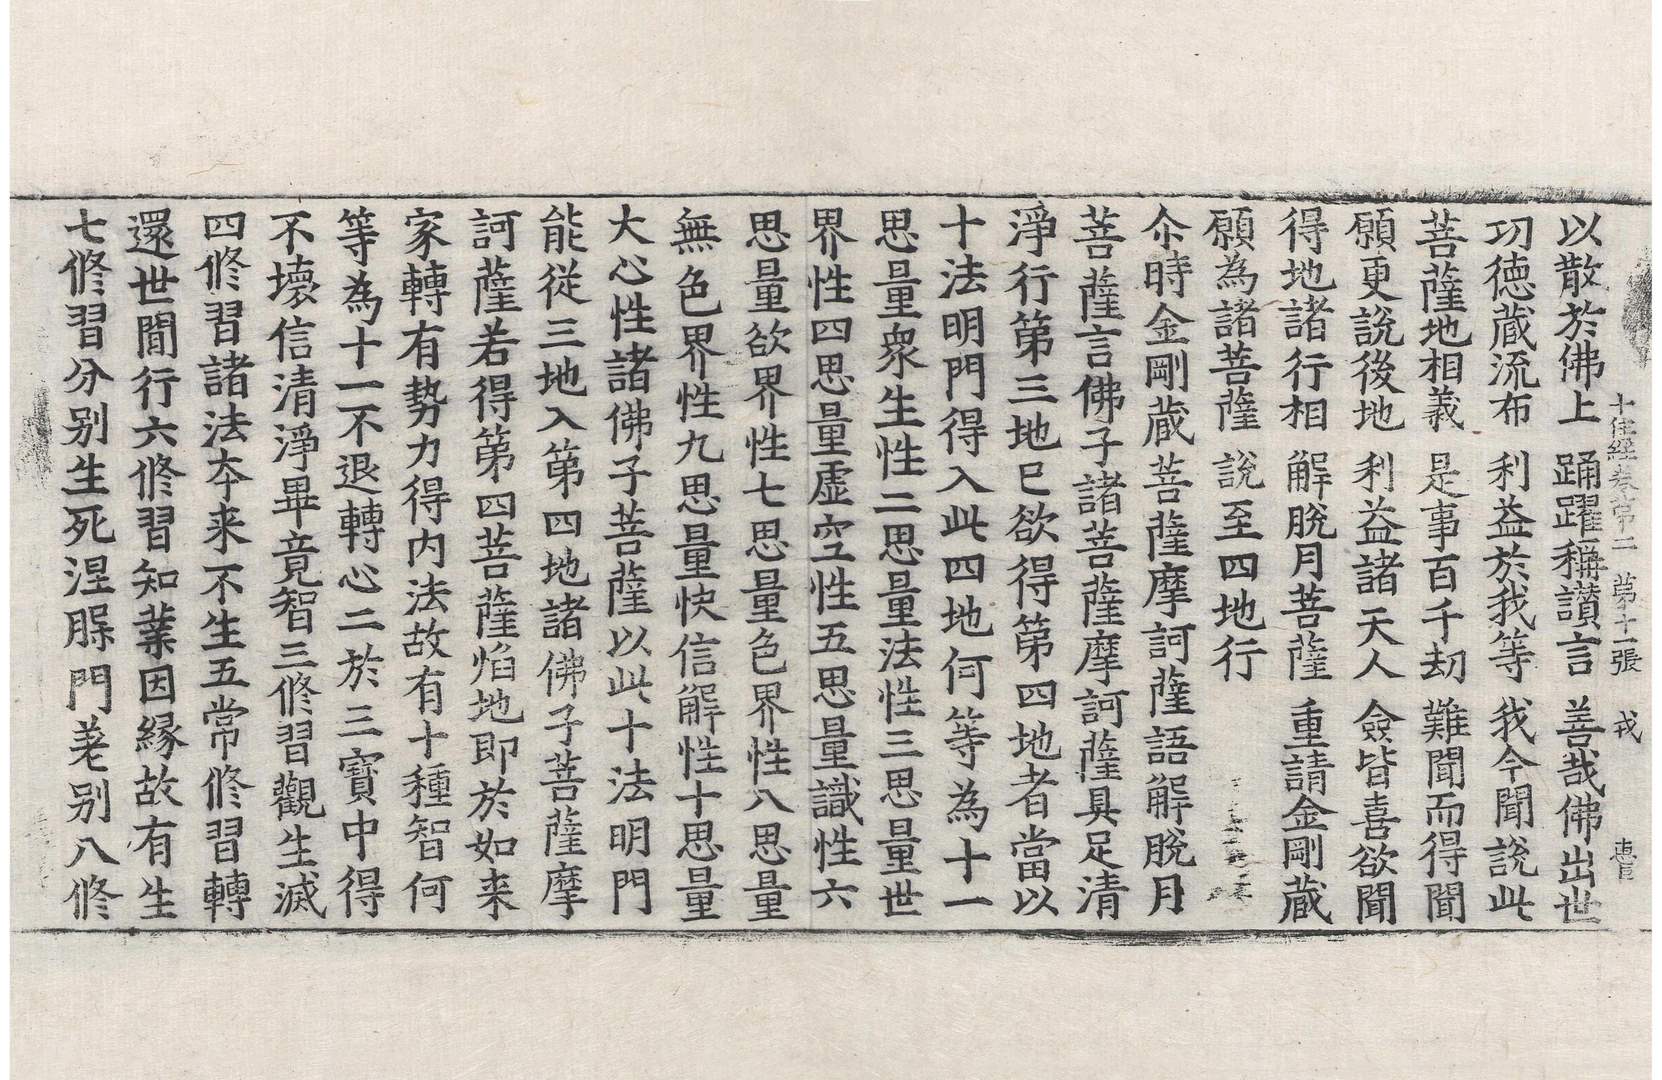 十住經卷第二　第十一張　戎
以散於佛上　踊躍稱讚言　善哉佛出世
功德藏流布　利益於我等　我今聞說此
菩薩地相義　是事百千劫　難聞而得聞
願更說後地　利益諸天人　僉皆喜欲聞
得地諸行相　解脫月菩薩　重請金剛藏
願為諸菩薩　說至四地行
尒時金剛藏菩薩摩訶薩語解脫月
菩薩言佛子諸菩薩摩訶薩具足清
淨行第三地已欲得第四地者當以
十法明門得入此四地何等為十一
思量衆生性二思量法性三思量世
界性四思量虛空性五思量識性六
思量欲界性七思量色界性八思量
無色界性九思量快信解性十思量
大心性諸佛子菩薩以此十法明門
能從三地入第四地諸佛子菩薩摩
訶薩若得第四菩薩焰地即於如来
家轉有勢力得内法故有十種智何
等為十一不退轉心二於三寶中得
不壞信清淨畢竟智三修習觀生滅
四修習諸法夲来不生五常修習轉
還世間行六修習知業因緣故有生
七修習分别生死涅脵門差别八修